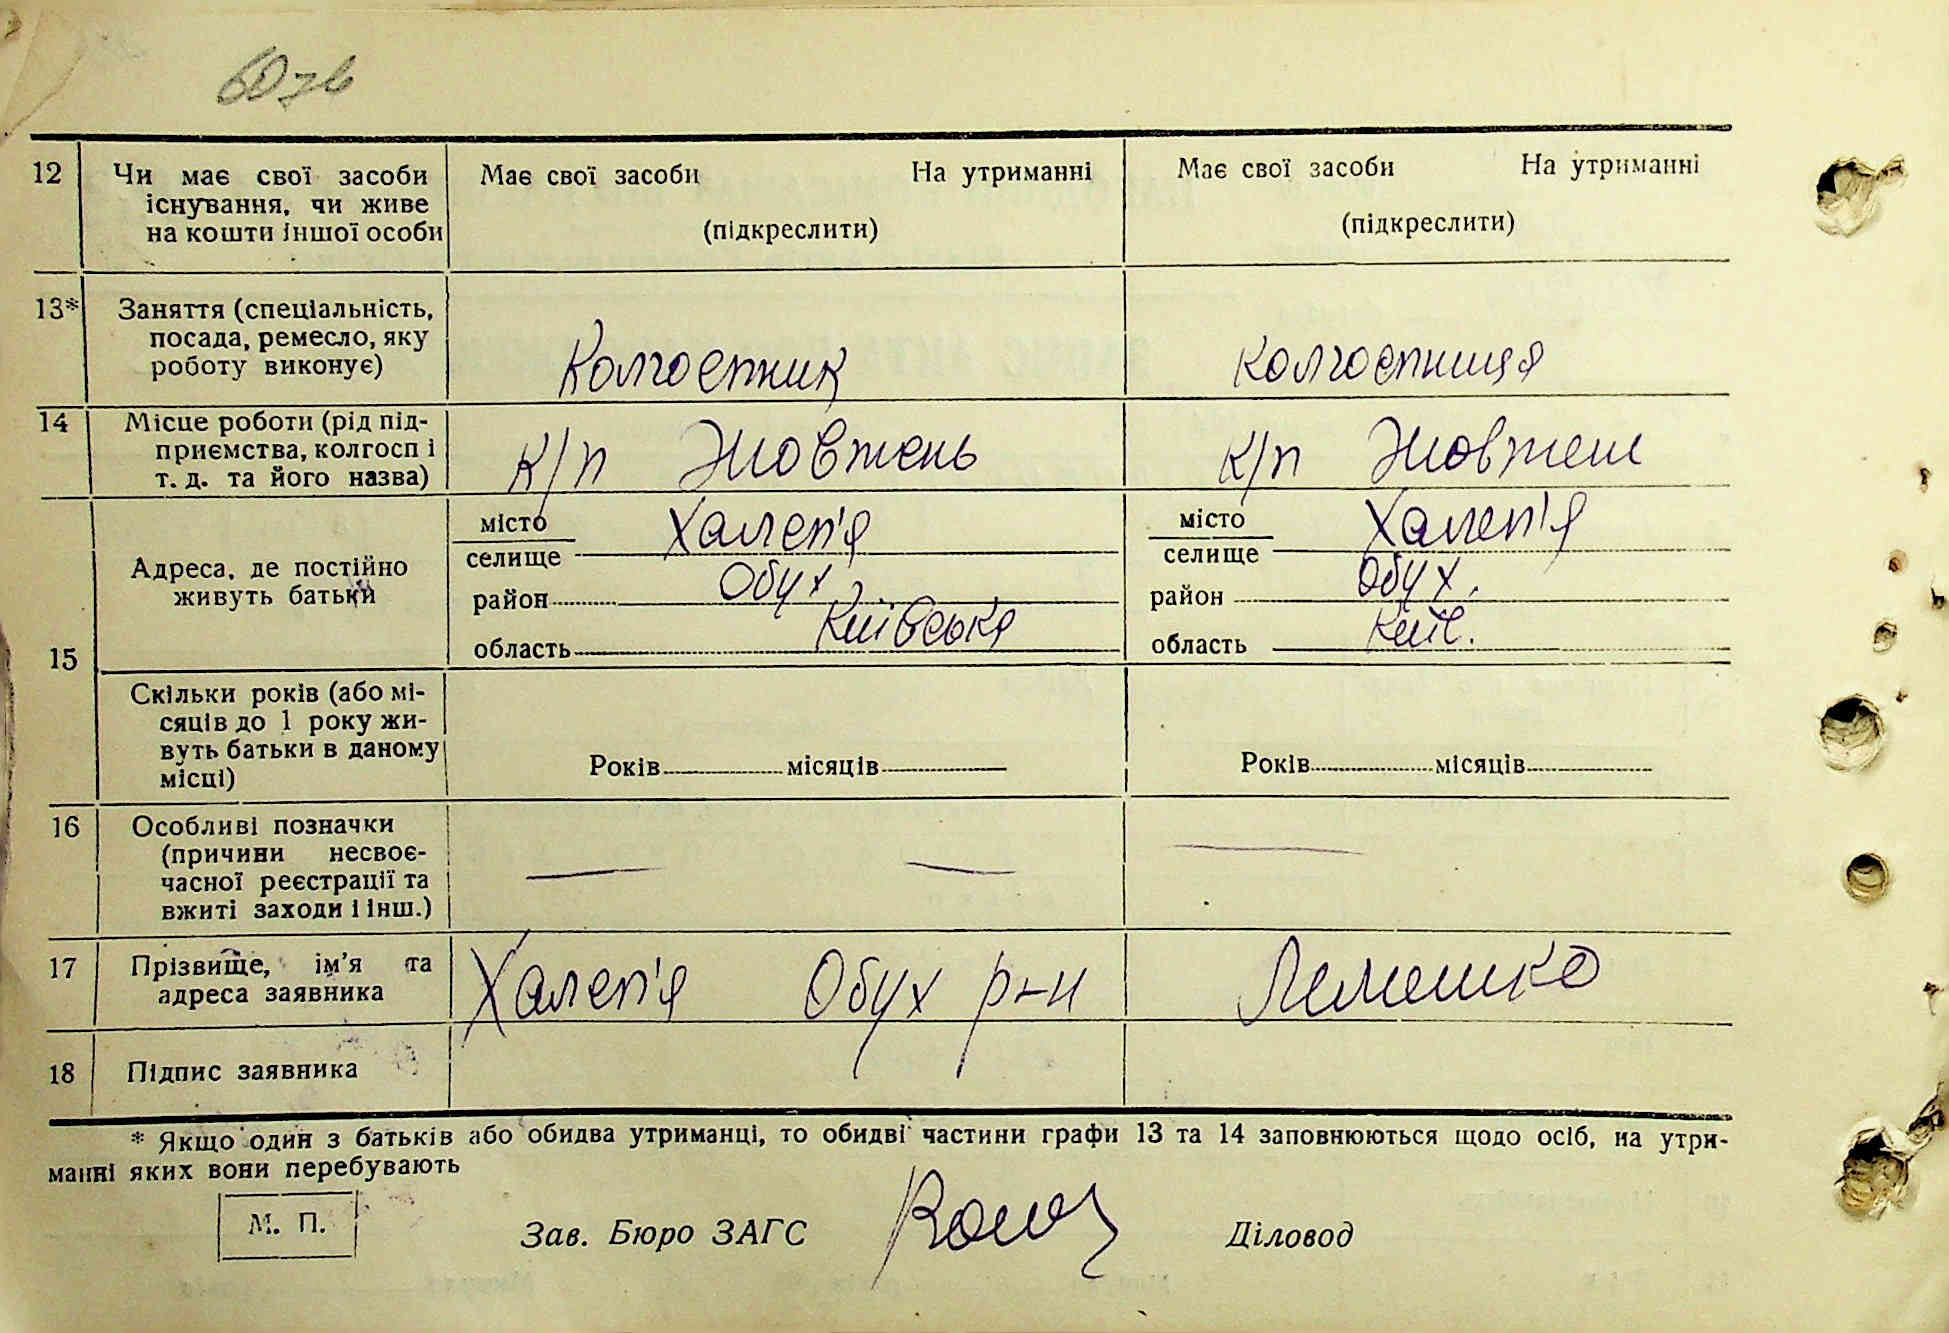 12 Чи має свої засоби Має свої засоби На утриманні Має свої засоби На утриманні
існування, чи живе (підкреслити) (підкреслити)
на кошти іншої особи
13* Заняття (спеціальність,
посада, ремесло, яку Колгоспник колгоспниця
роботу виконує)
14 Місце роботи (рід під-
приємства, колгосп і к/п Жовтень к/п Жовтень
т. д. та його назва)
місто Халеп'я місто Халеп'я
селище селище
Адреса, де постійно район Обух. район Обух.
живуть батьки область Київська область Київ.
15
Скільки років (або мі-
сяців до 1 року жи-
вуть батьки в даному Років місяців Років місяців
місці)
16 Особливі позначки
(причини несвоє- — — —
часної реєстрації та
вжиті заходи і інш.)
17 Прізвище, ім'я та Халеп'я Обух р-н Лемешко
адреса заявника
18 Підпис заявника
* Якщо один з батьків або обидва утриманці, то обидві частини графи 13 та 14 заповнюються щодо осіб, на утри-
манні яких вони перебувають
М. П. Зав. Бюро ЗАГС Діловод